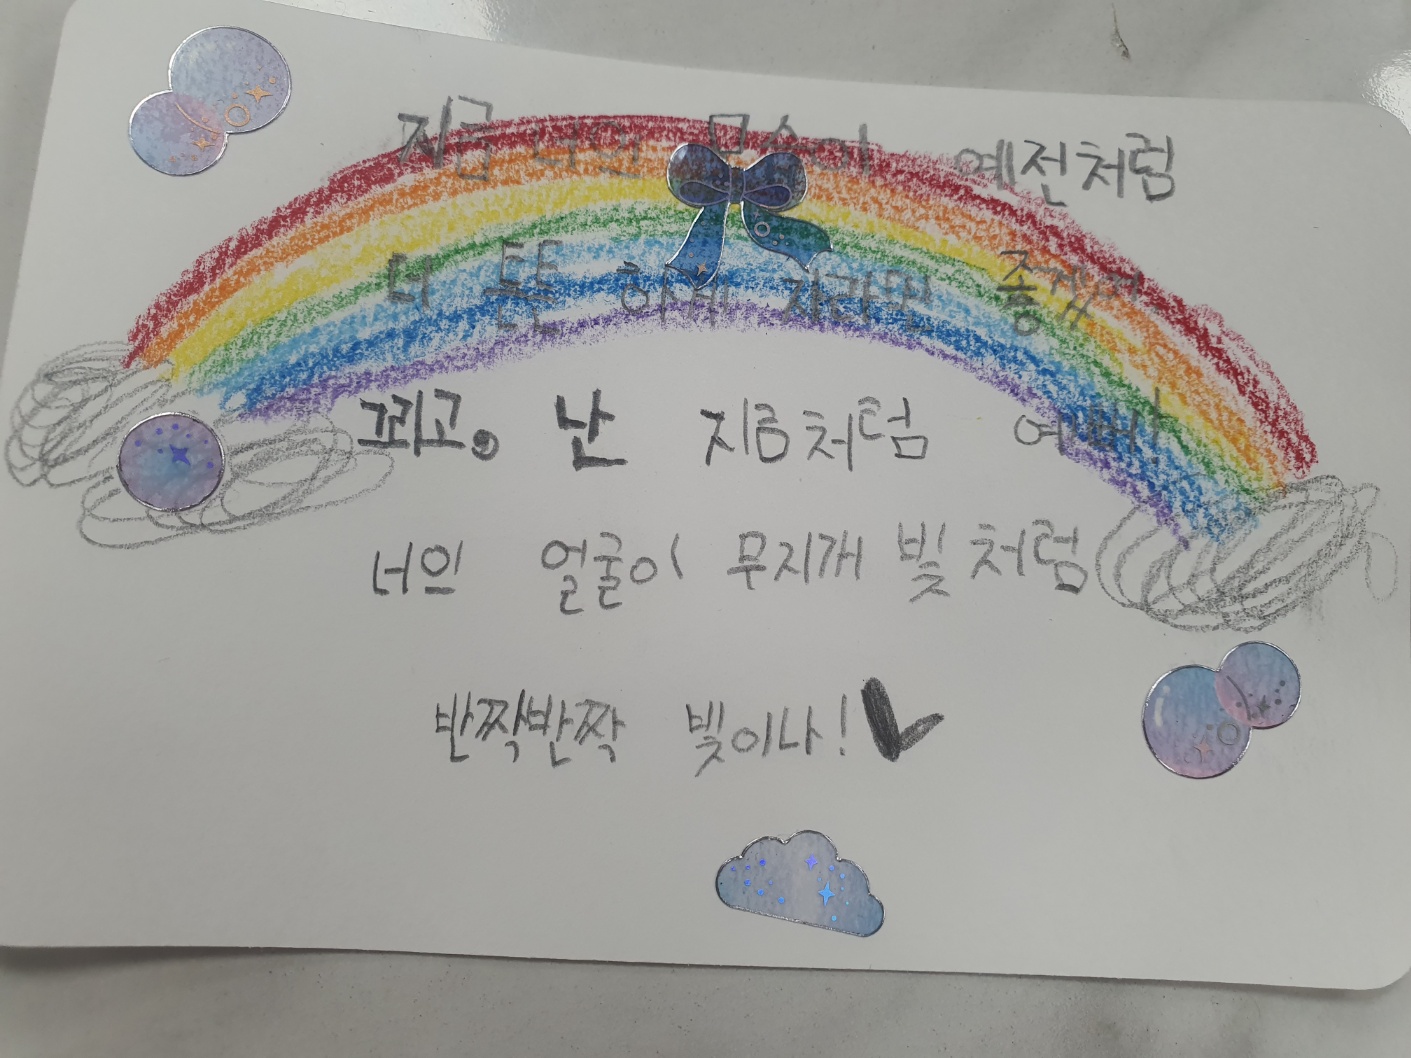 지금 너의 모습이 예전처럼
더 튼튼 하게 자라면 좋겠어
끄리고, 난 지금처럼 예뻐!
너의 얼굴이 무지개 빛 처럼
반짝반짝 빛이나!